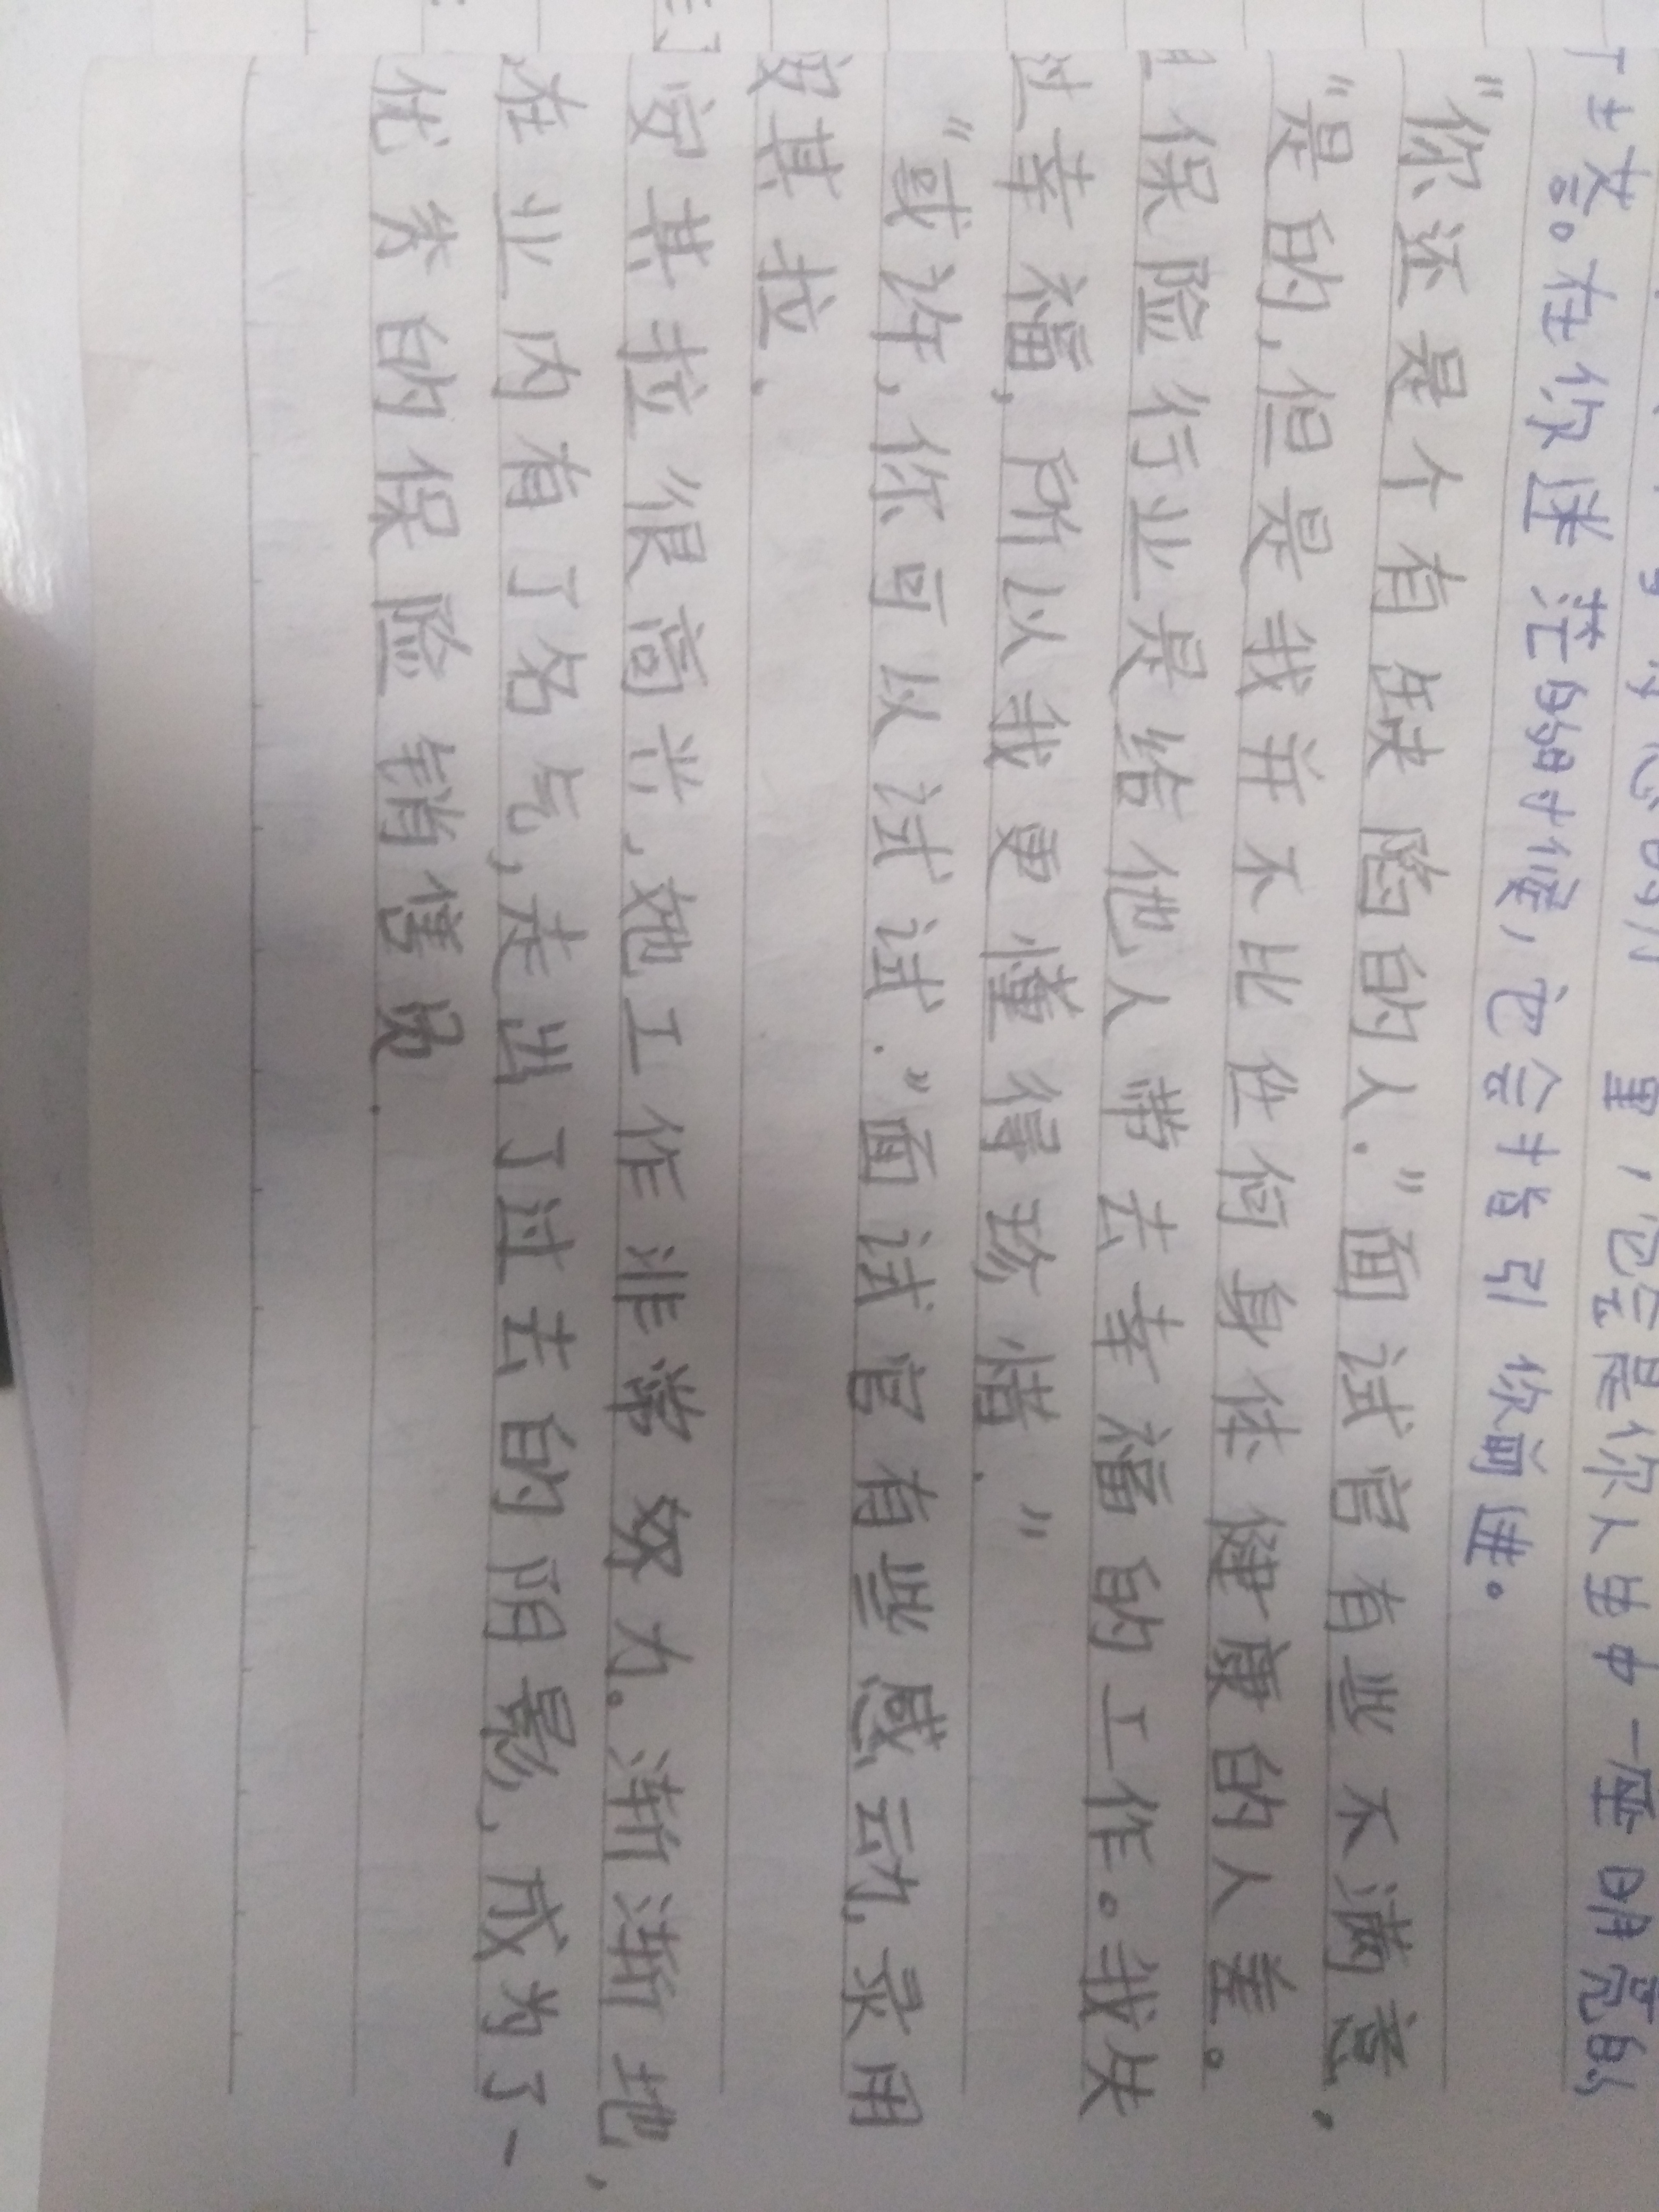 里，它会是你人生中一座明亮的
了塔。在你迷茫的时候，它会指引你前进。
“你还是个有缺陷的人.”面试官有些不满意，
“是的，但是我并不比任何身体健康的人差。
且保险行业是给他人带去幸福的工作。我失
过幸福，所以我更懂得珍惜.”
“或许，你可以试试.”面试官有些感动，录用
安其拉.
安其拉很高兴，她工作非常努力。渐渐地，
在业内有了名气，走出了过去的阴影，成为了一
优秀的保险销售员.